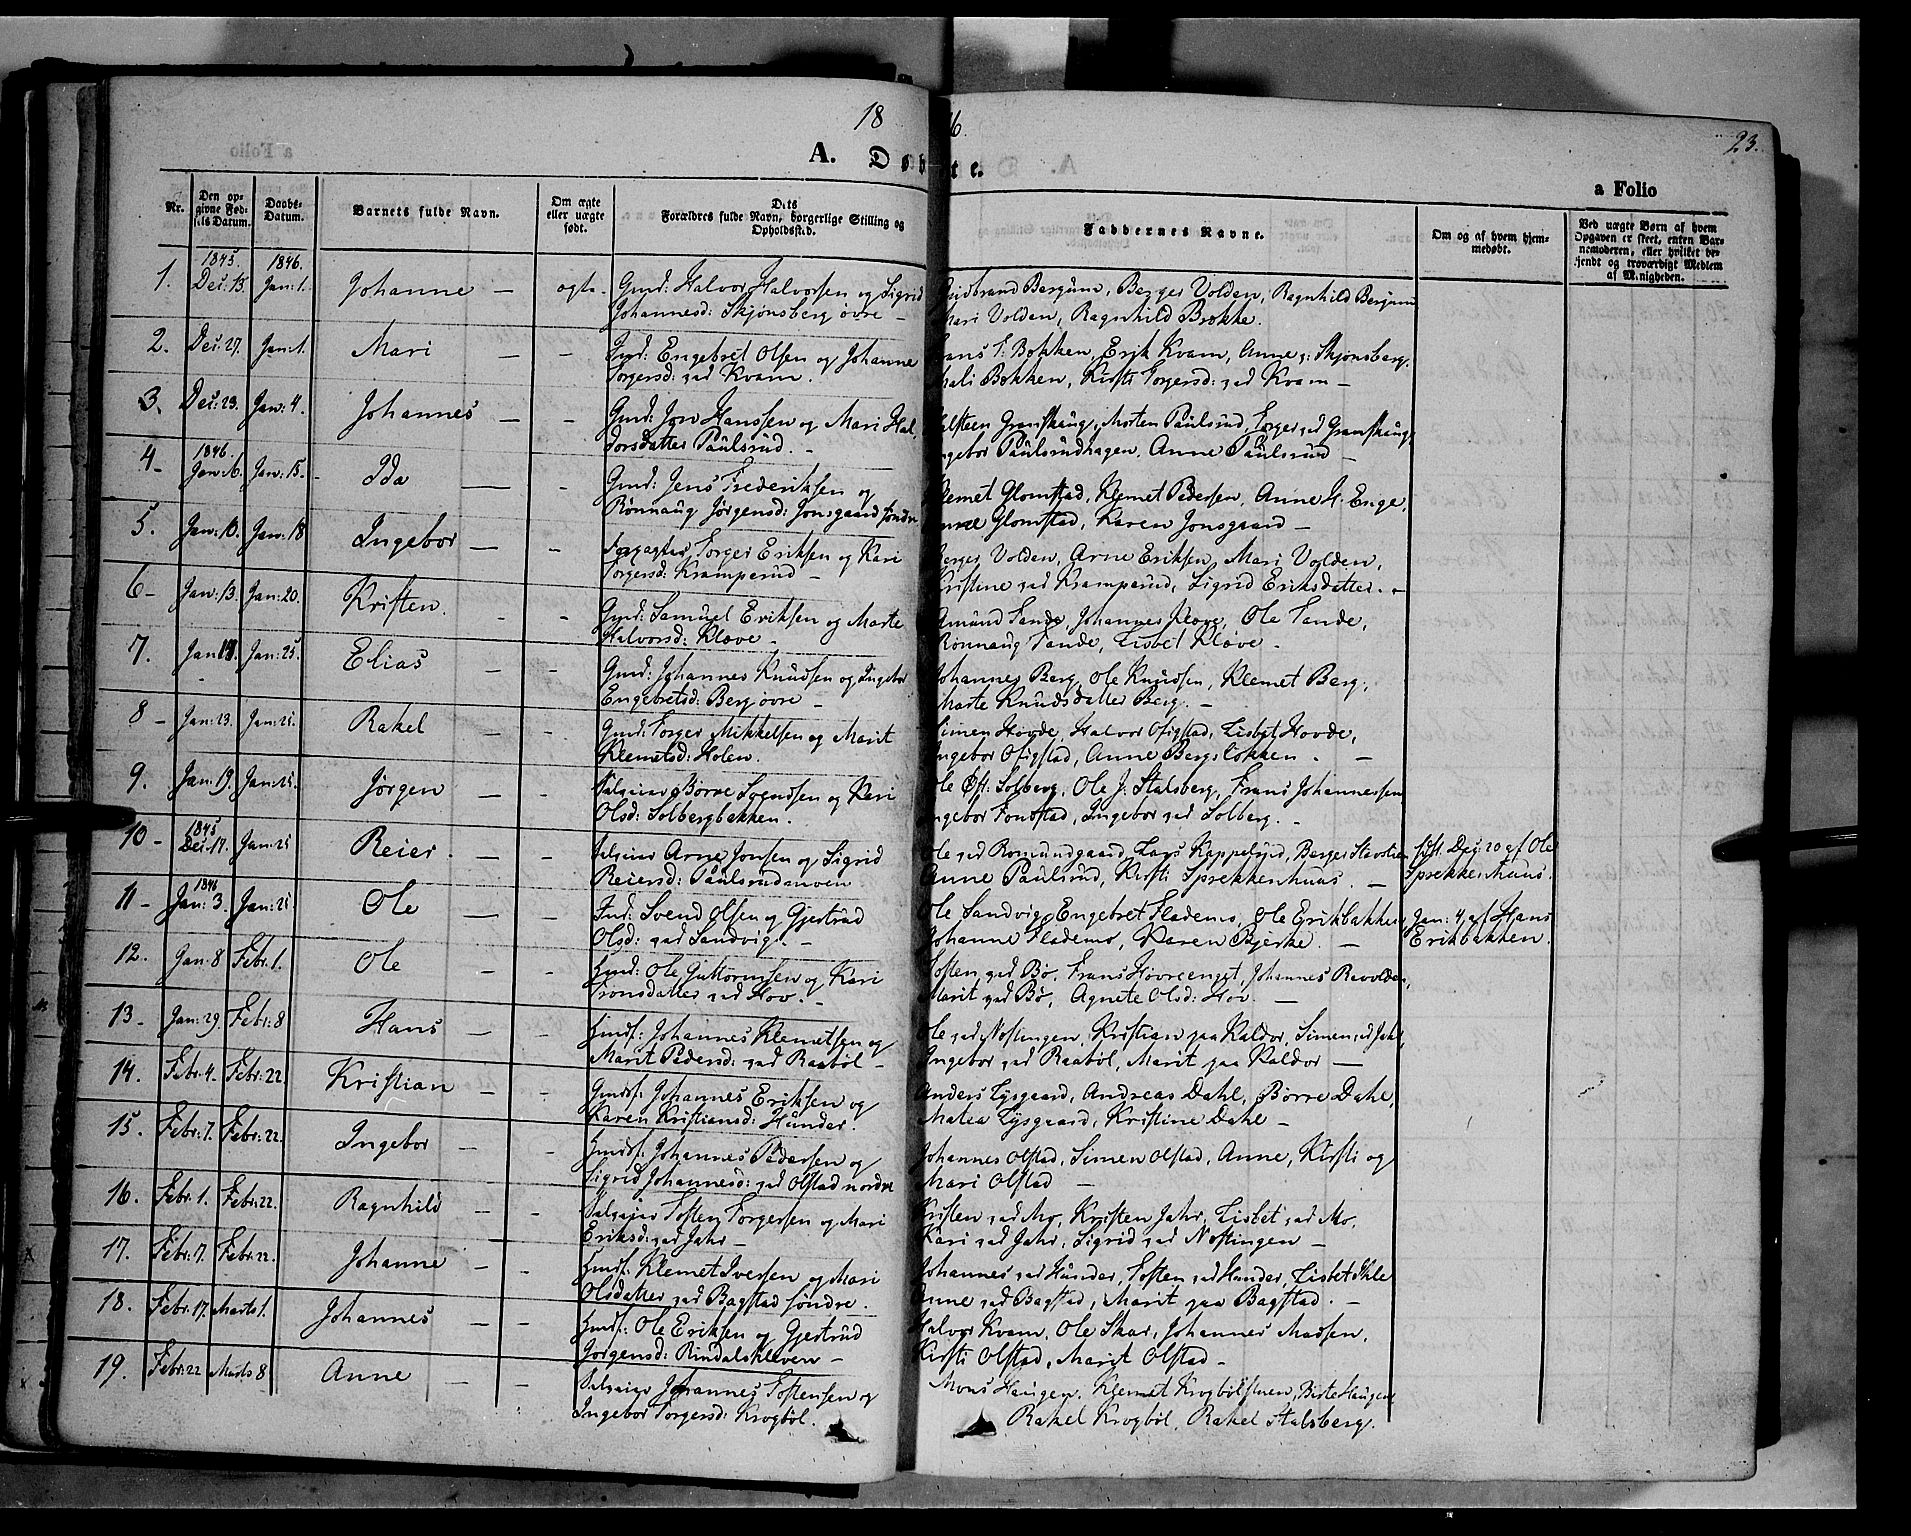 18 46.
23.
A. Døbte.
a Folio
Nr. Den opgivne Fødsels Datum. Daabs-Datum. Barnets fulde Navn. Om ægte eller uægte født. Dets Forældres fulde Navn, borgerlige Stilling og Opholdssted. Faddernes Navne. Om og af hvem hjemmedøbt. Ved uægte Børn af hvem Opgaven er skeet, enten Barnemoderen, eller hvilket bekjendt og troværdigt Medlem af Menigheden.
1. 1845. Dec: 13. 1846. Jan: 1. Johanne — ægte. Gmd: Halvor Halvorsen og Sigrid Gudbrand Bergum, Berger Volden, Ragnhild Bergum
Johannesd: Skjønsberg øvre — Mari Volden, Ragnhild Brokke.
2. Dec: 27. Jan: 1. Mari — — Gmd: Engebret Olsen og Johanne Hans E: Bakken, Erik Kvam, Anne Skjønsberg,
Torgersd: ved Kvam. Mali Bakken, Kirsti Torgersd: ved Kvam —
3. Dec: 23. Jan: 4. Johannes — — Gmd: Jon Hanssen og Mari Hal- Halsteen Granskoug, Morten Paulsrud, Torger ved Granskoug,
vorsdatter Paulsrud. — Ingebor Paulsrudhagen, Anne Paulsrud —
4. 1846. Jan: 6. Jan: 15. Ida — — Gmd: Jens Frederiksen og Klemet Glomstad, Klemet Pedersen, Anne H. Enge,
Rønnaug Jørgensd: Jonsgaard søndre Anne Glomstad, Karen Jonsgaard —
5. Jan: 10. Jan: 18 Ingebor — — Forpagter Torger Eriksen og Kari Berger Volden, Arne Eriksen, Mari Volden,
Torgersd: Kramperud — Kristine ved Kramperud, Sigrid Eriksdatter. —
6 — Jan: 13. Jan: 20. Kristen. — — Gmd: Samuel Eriksen og Marte Amund Tande, Johannes Kløve, Ole Tande,
Halvorsd: Kløve — Rønnaug Tande, Lisbet Kløve —
7. Jan: Jan: 25. Elias — — Gmd: Johannes Knudsen og Ingebor Johannes Berg, Ole Knudsen, Klemet Berg,
Engebretsd: Berg øvre — Marte Knudsdatter Berg. —
8 — Jan: 23. Jan: 25. Rakel — — Gmd: Torger Mikkelsen og Marit Simen Hovde, Halvor Ofigstad, Lisbet Hovde,
Klemetsd: Holen. Ingebor Ofigstad, Anne Bergsløkken. —
9. Jan: 19. Jan: 25. Jørgen — — Selveier Børre Svendsen og Kari Ole Solberg, Ole J: Stalsberg, Frans Johannessen
Olsd: Solbergbakken. Ingebor Fonstad, Ingebor ved Solberg. —
10 — 1845 Dec: 17. Jan: 25 Reier. — — Selveier Arne Jonsen og Sigrid Ole ved Romundgaard, Lars Kappelsjod, Berger Stavslien hjft. Dec: 20 af Ole
Reiersd: Paulsrudmoen Anne Paulsrud, Kirsti Sprekkenhuus. — Sprekkenhuus.
11 — 1846 Jan: 3. Jan: 25 Ole — — Ind: Svend Olsen og Gjertrud Ole Sandvig, Engebret Flademo, Ole Erikbakken Jan: 4, af Hans
Olsd: ved Sandvig. — Johanne Flademo, Karen Bjerke. — Erikbakken.
12. Jan: 8 Febr. 1. Ole — — Hmd: Ole Guttormsen og Kari Tosten ved Bø, Frans Hovreenget, Johannes Revolden,
Tronsdatter ved Hov. — Marit ved Bø, Agnete Olsd: Hov. —
13 — Jan: 29. Febr: 8 Hans — — Hmdf: Johannes Klemetsen og Ole ved Nostingen, Kristian paa Kaldor, Simen ved Jahr,
Marit Pedersd: ved Raabøl — Ingebor ved Raabøl, Marit paa Kaldor —
14. Febr: 4. Febr: 22. Kristian — — Gmdf: Johannes Eriksen og Anders Lysgaard, Andreas Dahl, Børre Dahl,
Karen Kristiansd: Hunder. Matea Lysgaard, Kristine Dahl —
15. Febr: 7. Febr: 22. Ingebor — — Hmdf: Johannes Pedersen og Johannes Olstad, Simen Olstad, Anne, Kirsti og
Sigrid Johannesd: ved Olstad nordre Mari Olstad —
16. Febr. 1. Febr: 22. Ragnhild — — Selveier Tosten Torgersen og Mari Kristen ved Mo, Kristen Jahr, Lisbet ved Mo,
Eriksd: ved Jahr — Kari ved Jahr, Sigrid ved Nostingen —
17. Febr: 7. Febr: 22. Johanne — — Hmdf: Klemet Iversen og Mari Johannes ved Hunder, Tosten ved Hunder, Lisbet Ihle
Olsdatter ved Bagstad søndre. Anne ved Bagstad, Marit paa Bagstad. —
18. Febr: 17. Marts 1. Johannes — — Hmdf: Ole Eriksen og Gjertrud Halvor Kvam, Ole Skar, Johannes Madsen,
Jørgensd: Rindalskleven — Kirsti Olstad, Marit Olstad —
19. Febr: 22 Marts 8 Anne — — Selveier Johannes Tostensen og Mons Haugen, Klemet Krogbølstuen, Birte Haugen
Ingebor Torgersd: Krogbøl. Rakel Krogbøl, Rakel Stalsberg.